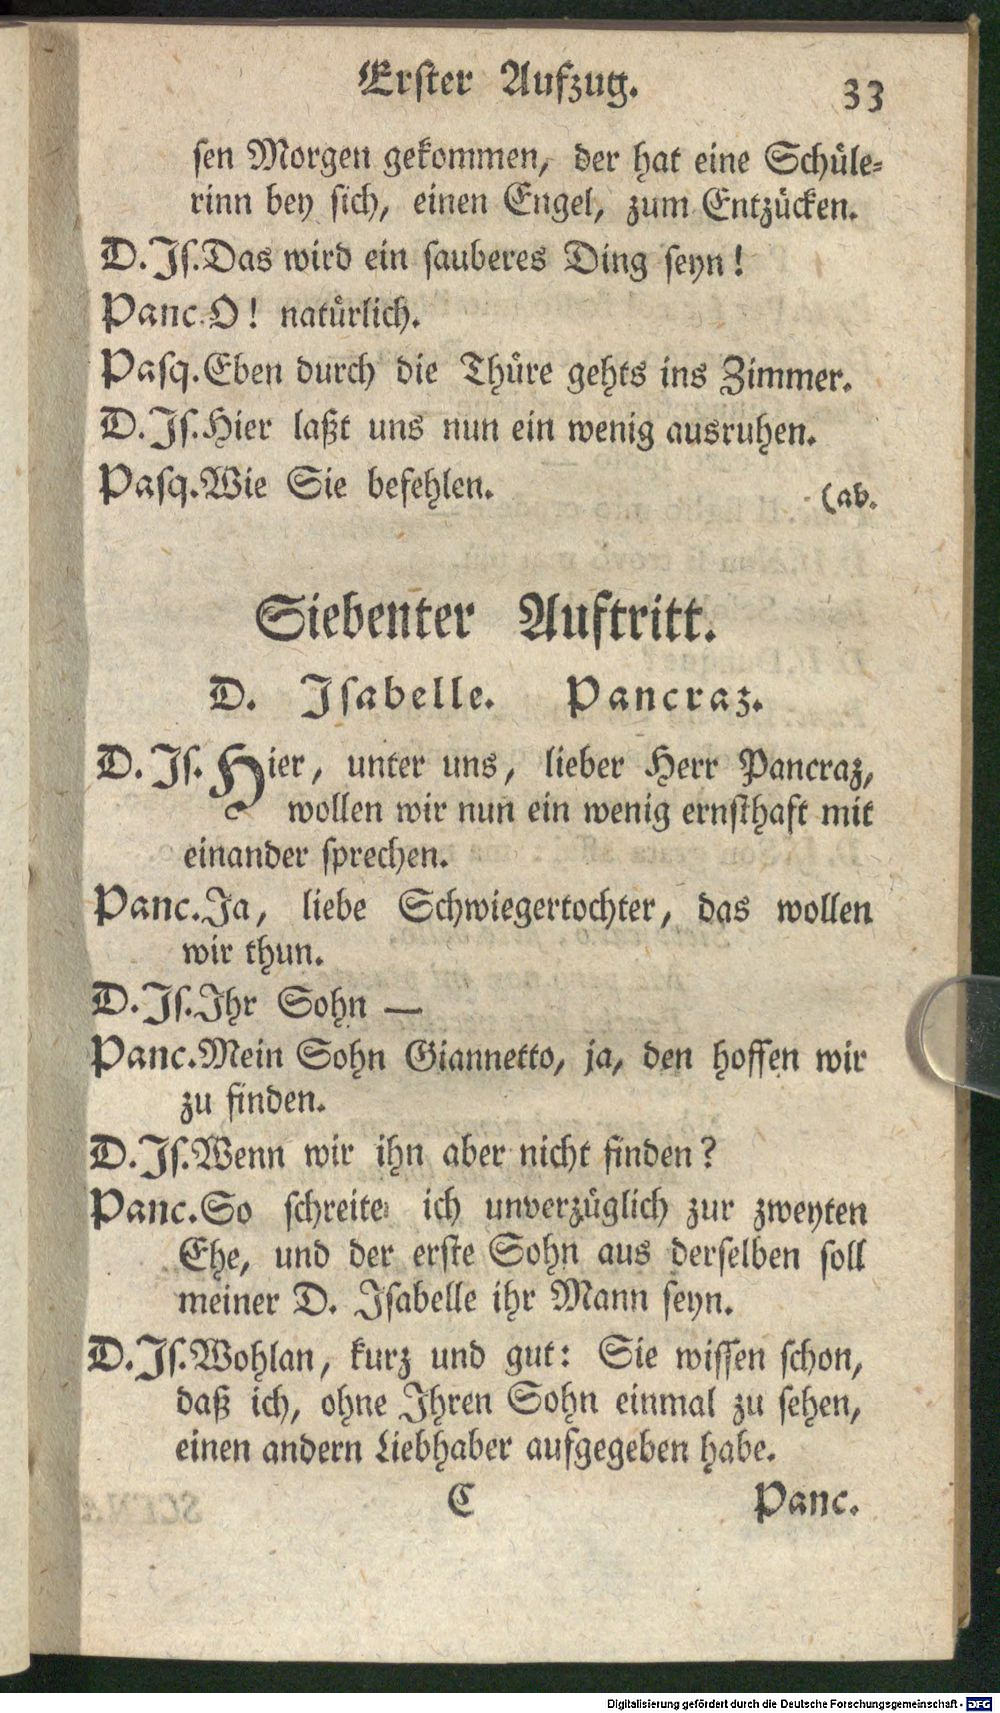 Erster Aufzug. 33
sen Morgen gekommen, der hat eine Schüle-
rinn bey sich, einen Engel, zum Entzücken.
D. Is. Das wird ein sauberes Ding seyn!
Panc. O! natürlich.
Pasq. Eben durch die Thüre gehts ins Zimmer.
D. Is. Hier laßt uns nun ein wenig ausruhen.
Pasq. Wie Sie befehlen. (ab.
Siebenter Auftritt.
D. Isabelle. Pancraz.
D. Is. Hier, unter uns, lieber Herr Pancraz,
wollen wir nun ein wenig ernsthaft mit
einander sprechen.
Panc. Ja, liebe Schwiegertochter, das wollen
wir thun.
D. Is. Ihr Sohn —
Panc. Mein Sohn Giannetto, ja, den hoffen wir
zu finden.
D. Is. Wenn wir ihn aber nicht finden?
Panc. So schreite ich unverzüglich zur zweyten
Ehe, und der erste Sohn aus derselben soll
meiner D. Isabelle ihr Mann seyn.
D. Is. Wohlan, kurz und gut: Sie wissen schon,
daß ich, ohne Ihren Sohn einmal zu sehen,
einen andern Liebhaber aufgegeben habe.
C Panc.
Digitalisierung gefördert durch die Deutsche Forschungsgemeinschaft - DFG